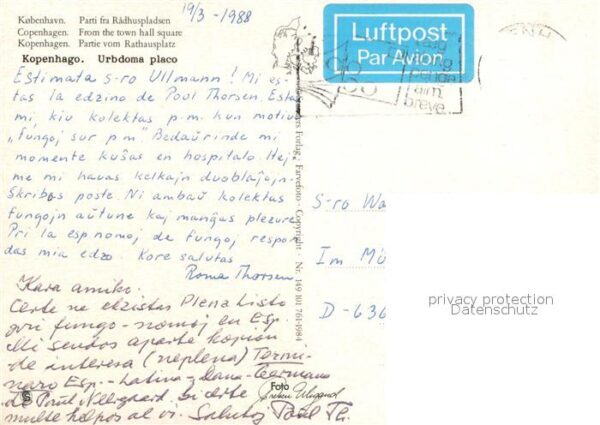 19/3-1988
København. Parti fra Rådhuspladsen
Copenhagen. From the town hall square
Kopenhagen. Partie vom Rathausplatz
Kopenhago. Urbdoma placo
Luftpost
Par Avion
Estimata s-ro Ullmann! Mi es-
tas la edzino de Poul Thorsen. Estas
mi, kiu kolektas p.m. kun motivo
"fungoj sur p.m." Bedaŭrinde mi
momente kuŝas en hospitalo. Hej-
me mi havas kelkajn duoblaĵojn.
Skribos poste. Ni ambaŭ kolektas
fungojn aŭtune kaj manĝas plezure
Pri la esp nomoj de fungoj respon-
das mia edzo. Kore salutas
Roma Thorsen
Kara amiko.
Certe ne ekzistas Plena Listo
pri fungo-nomoj en Esp.
Mi sendos aparte kopion
de interesa (neplena) Termi-
naro Esp.-Latina-Dana-Germana
de Poul Neergaard. Ĝi certe
multe helpos al vi. Salutoj Poul Th.
Forlag. Farvefoto - Copyright - Nr. 149 101 761-1984
Foto
S
S-ro Wa
Im Mü
D-636
privacy protection
Datenschutz